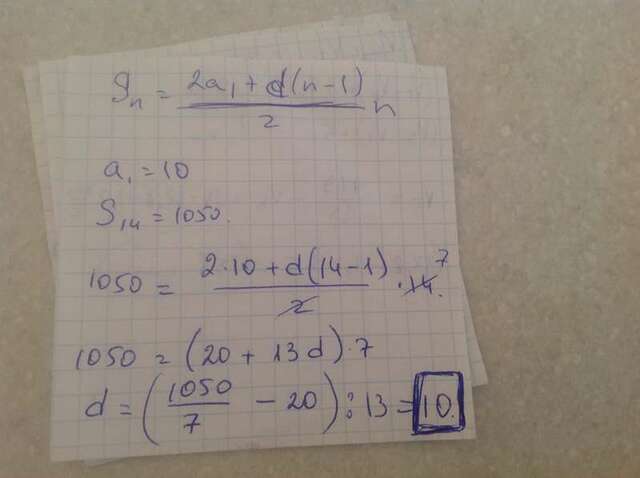 Sn = (2a₁ + d(n-1))/2 n
a₁ = 10
S₁₄ = 1050.
1050 = (2·10 + d(14-1))/2 · 14. 7
1050 = (20 + 13d)·7
d = (1050/7 - 20) : 13 = 10.